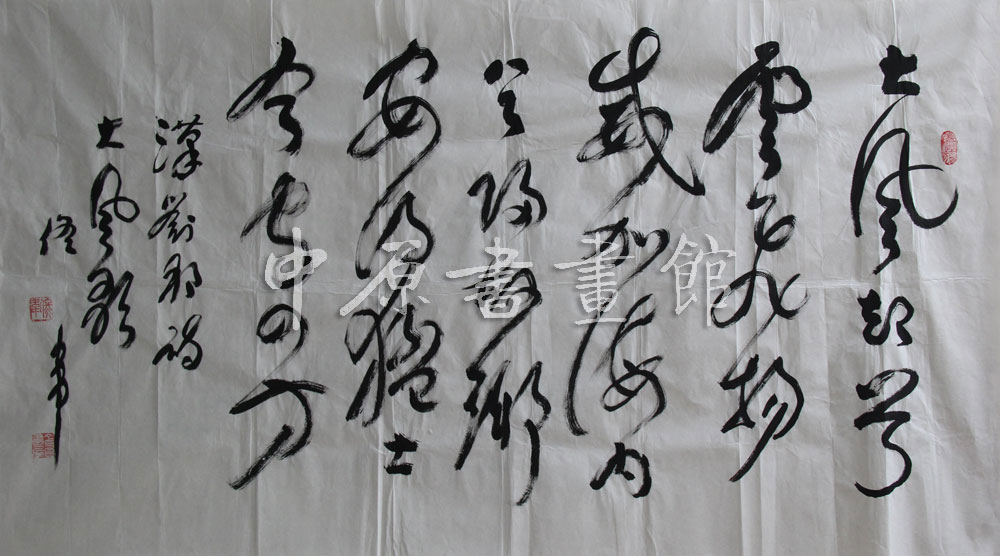 大風起兮
雲飛揚
威加海内
兮歸故鄉
安得猛士
兮守四方
漢劉邦詩
大風歌
中原書畫館